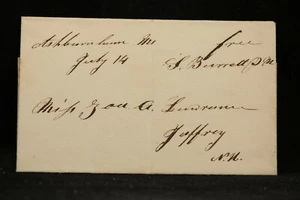 Ashburnham Ms free
July 14 S. Burrett P.M.
Miss Zoa A. Lawrence
Jaffrey
N.H.